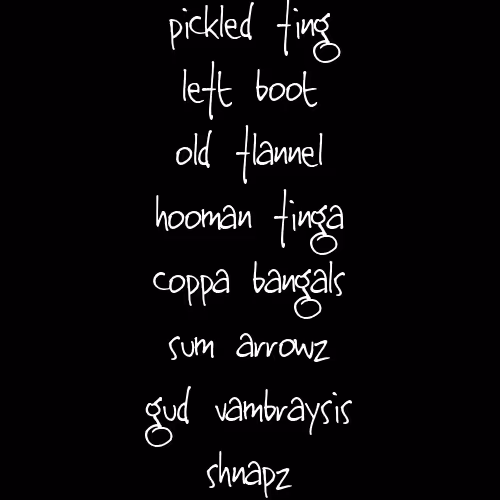 pickled ting
left boot
old flannel
hooman finga
coppa bangals
sum arrowz
gud vambraysis
shnapz